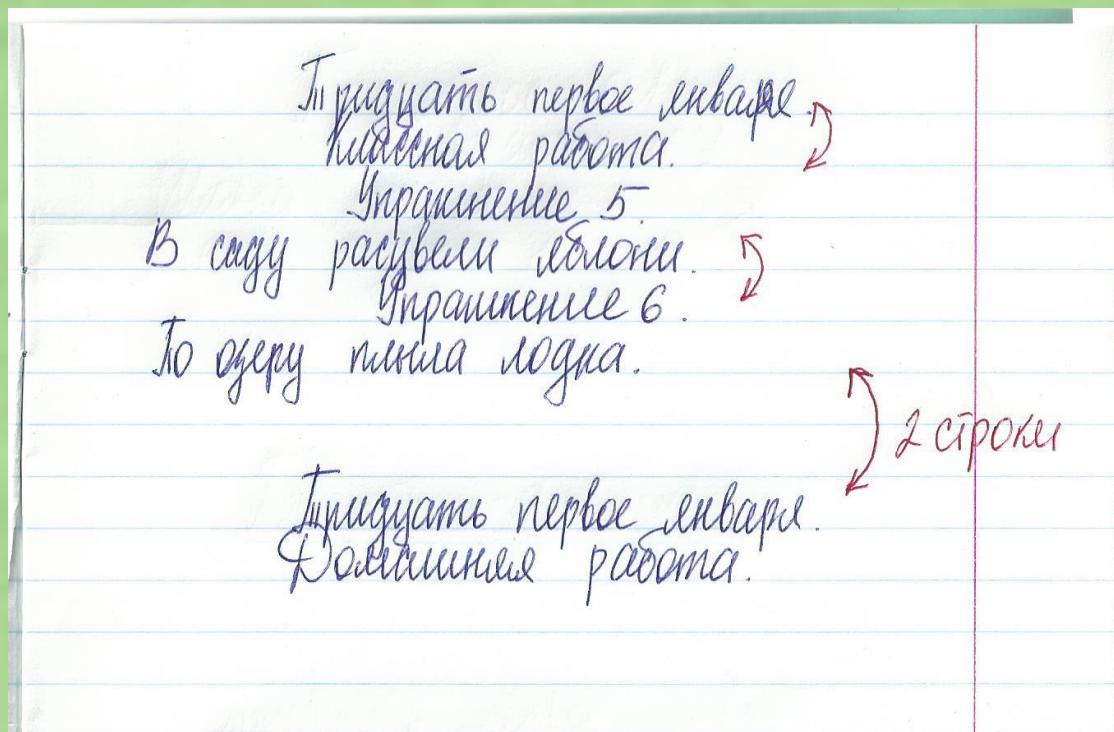 Тридцать первое января.
Классная работа.
Упражнение 5.
В саду расцвели яблони.
Упражнение 6.
По озеру плыла лодка.
2 строки
Тридцать первое января.
Домашняя работа.